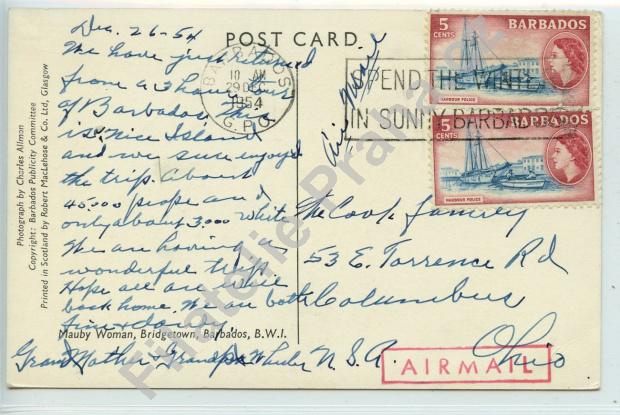 POST CARD
Dec. 26-54
We have just returned
from a 3 hour tour
of Barbados. This
is a nice Island
and we sure enjoyed
the trip. About
45,000 people and
only about 3,000 white
We are having a
wonderful trip.
Hope all are well
back home. We are both
fine & dandy
Grand Mother & Grandpa
Air Mail
The Cook family
53 E. Torrence Rd
Columbus
Ohio
U.S.A.
AIRMAIL
BARBADOS
10 AM
29 DEC
1954
G.P.O.
SPEND THE WINTER
IN SUNNY BARBADOS
5 CENTS
BARBADOS
HARBOUR POLICE
5 CENTS
BARBADOS
HARBOUR POLICE
Mauby Woman, Bridgetown, Barbados, B.W.I.
Photograph by Charles Allmon
Copyright: Barbados Publicity Committee
Printed in Scotland by Robert MacLehose & Co. Ltd, Glasgow
Filatelie Praha